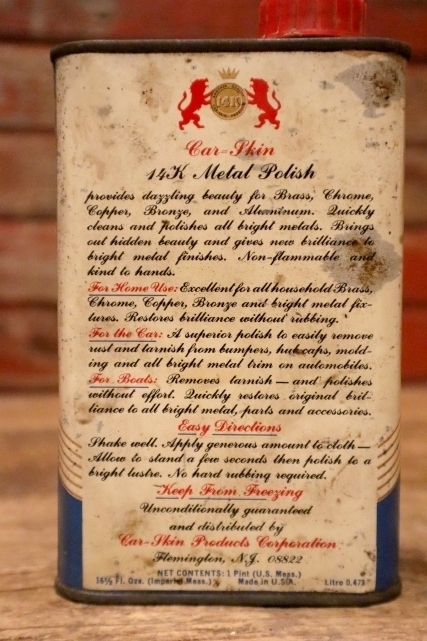 14K
Car-Skin
14K Metal Polish
provides dazzling beauty for Brass, Chrome,
Copper, Bronze, and Aluminum. Quickly
cleans and polishes all bright metals. Brings
out hidden beauty and gives new brilliance to
bright metal finishes. Non-flammable and
kind to hands.
For Home Use: Excellent for all household Brass,
Chrome, Copper, Bronze and bright metal fix-
tures. Restores brilliance without rubbing.
For the Car: A superior polish to easily remove
rust and tarnish from bumpers, hub caps, mold-
ing and all bright metal trim on automobiles.
For Boats: Removes tarnish — and polishes
without effort. Quickly restores original bril-
liance to all bright metal, parts and accessories.
Easy Directions
Shake well. Apply generous amount to cloth—
Allow to stand a few seconds then polish to a
bright lustre. No hard rubbing required.
Keep From Freezing
Unconditionally guaranteed
and distributed by
Car-Skin Products Corporation
Flemington, N.J. 08822
NET CONTENTS: 1 Pint (U.S. Meas.)
16½ Fl. Ozs. (Imperial Meas.) Made in U.S.A. Litro 0,473